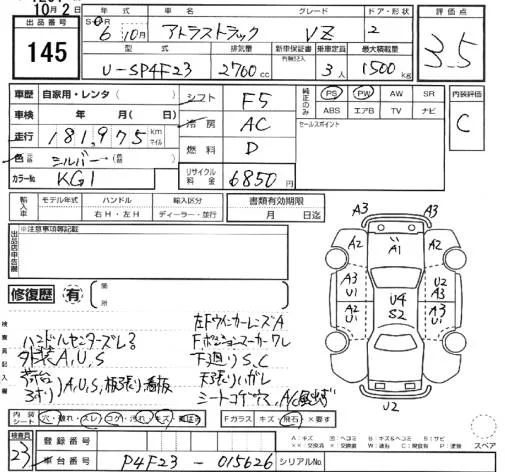 10月2日
出品番号
145
年式
車名
グレード
ドア・形状
評価点
S・H
6年10月
アトラストラック
VZ
2
3.5
型式
排気量
新車保証書
有無記入
乗車定員
最大積載量
U-SP4F23
2700cc
3人
1500kg
車歴
自家用・レンタ( )
シフト
F5
純正のみ
PS
PW
AW
SR
ABS
エアB
TV
ナビ
内装評価
C
車検
年 月( 日)
冷房
AC
セールスポイント
走行
181,975
km
マイル
燃料
D
色
シルバー
カラーNo.
KG1
リサイクル料金
6850円
輸入車
モデル年式
ハンドル
輸入区分
右H・左H
ディーラー・並行
書類有効期限
月 日迄
出品店申告欄
※注意事項等記載
修復歴
有
箇所
検査員記入欄
左FウインカーレンズA
ハンドルセンターズレ
Fポジションスモークワレ
外装A,U,S
下廻りS,C
荷台
3方リ)A,U,S,板張り看板
天張り
シートコゲ穴,A/C風出ず
A3
A3
A2
A1
A2
A3
U1
U2
A3
U4
S2
A2
U1
A3
U1
A3
A3
U2
内装シート
穴・破れ・スレ・コゲ・汚れ・キズ
Fガラス
キズ・飛石・×要す
A:キズ
U:ヘコミ
B:キズ&ヘコミ
S:サビ
スペア
検査員
23
登録番号
車台番号
P4F23-015626
シリアルNo.